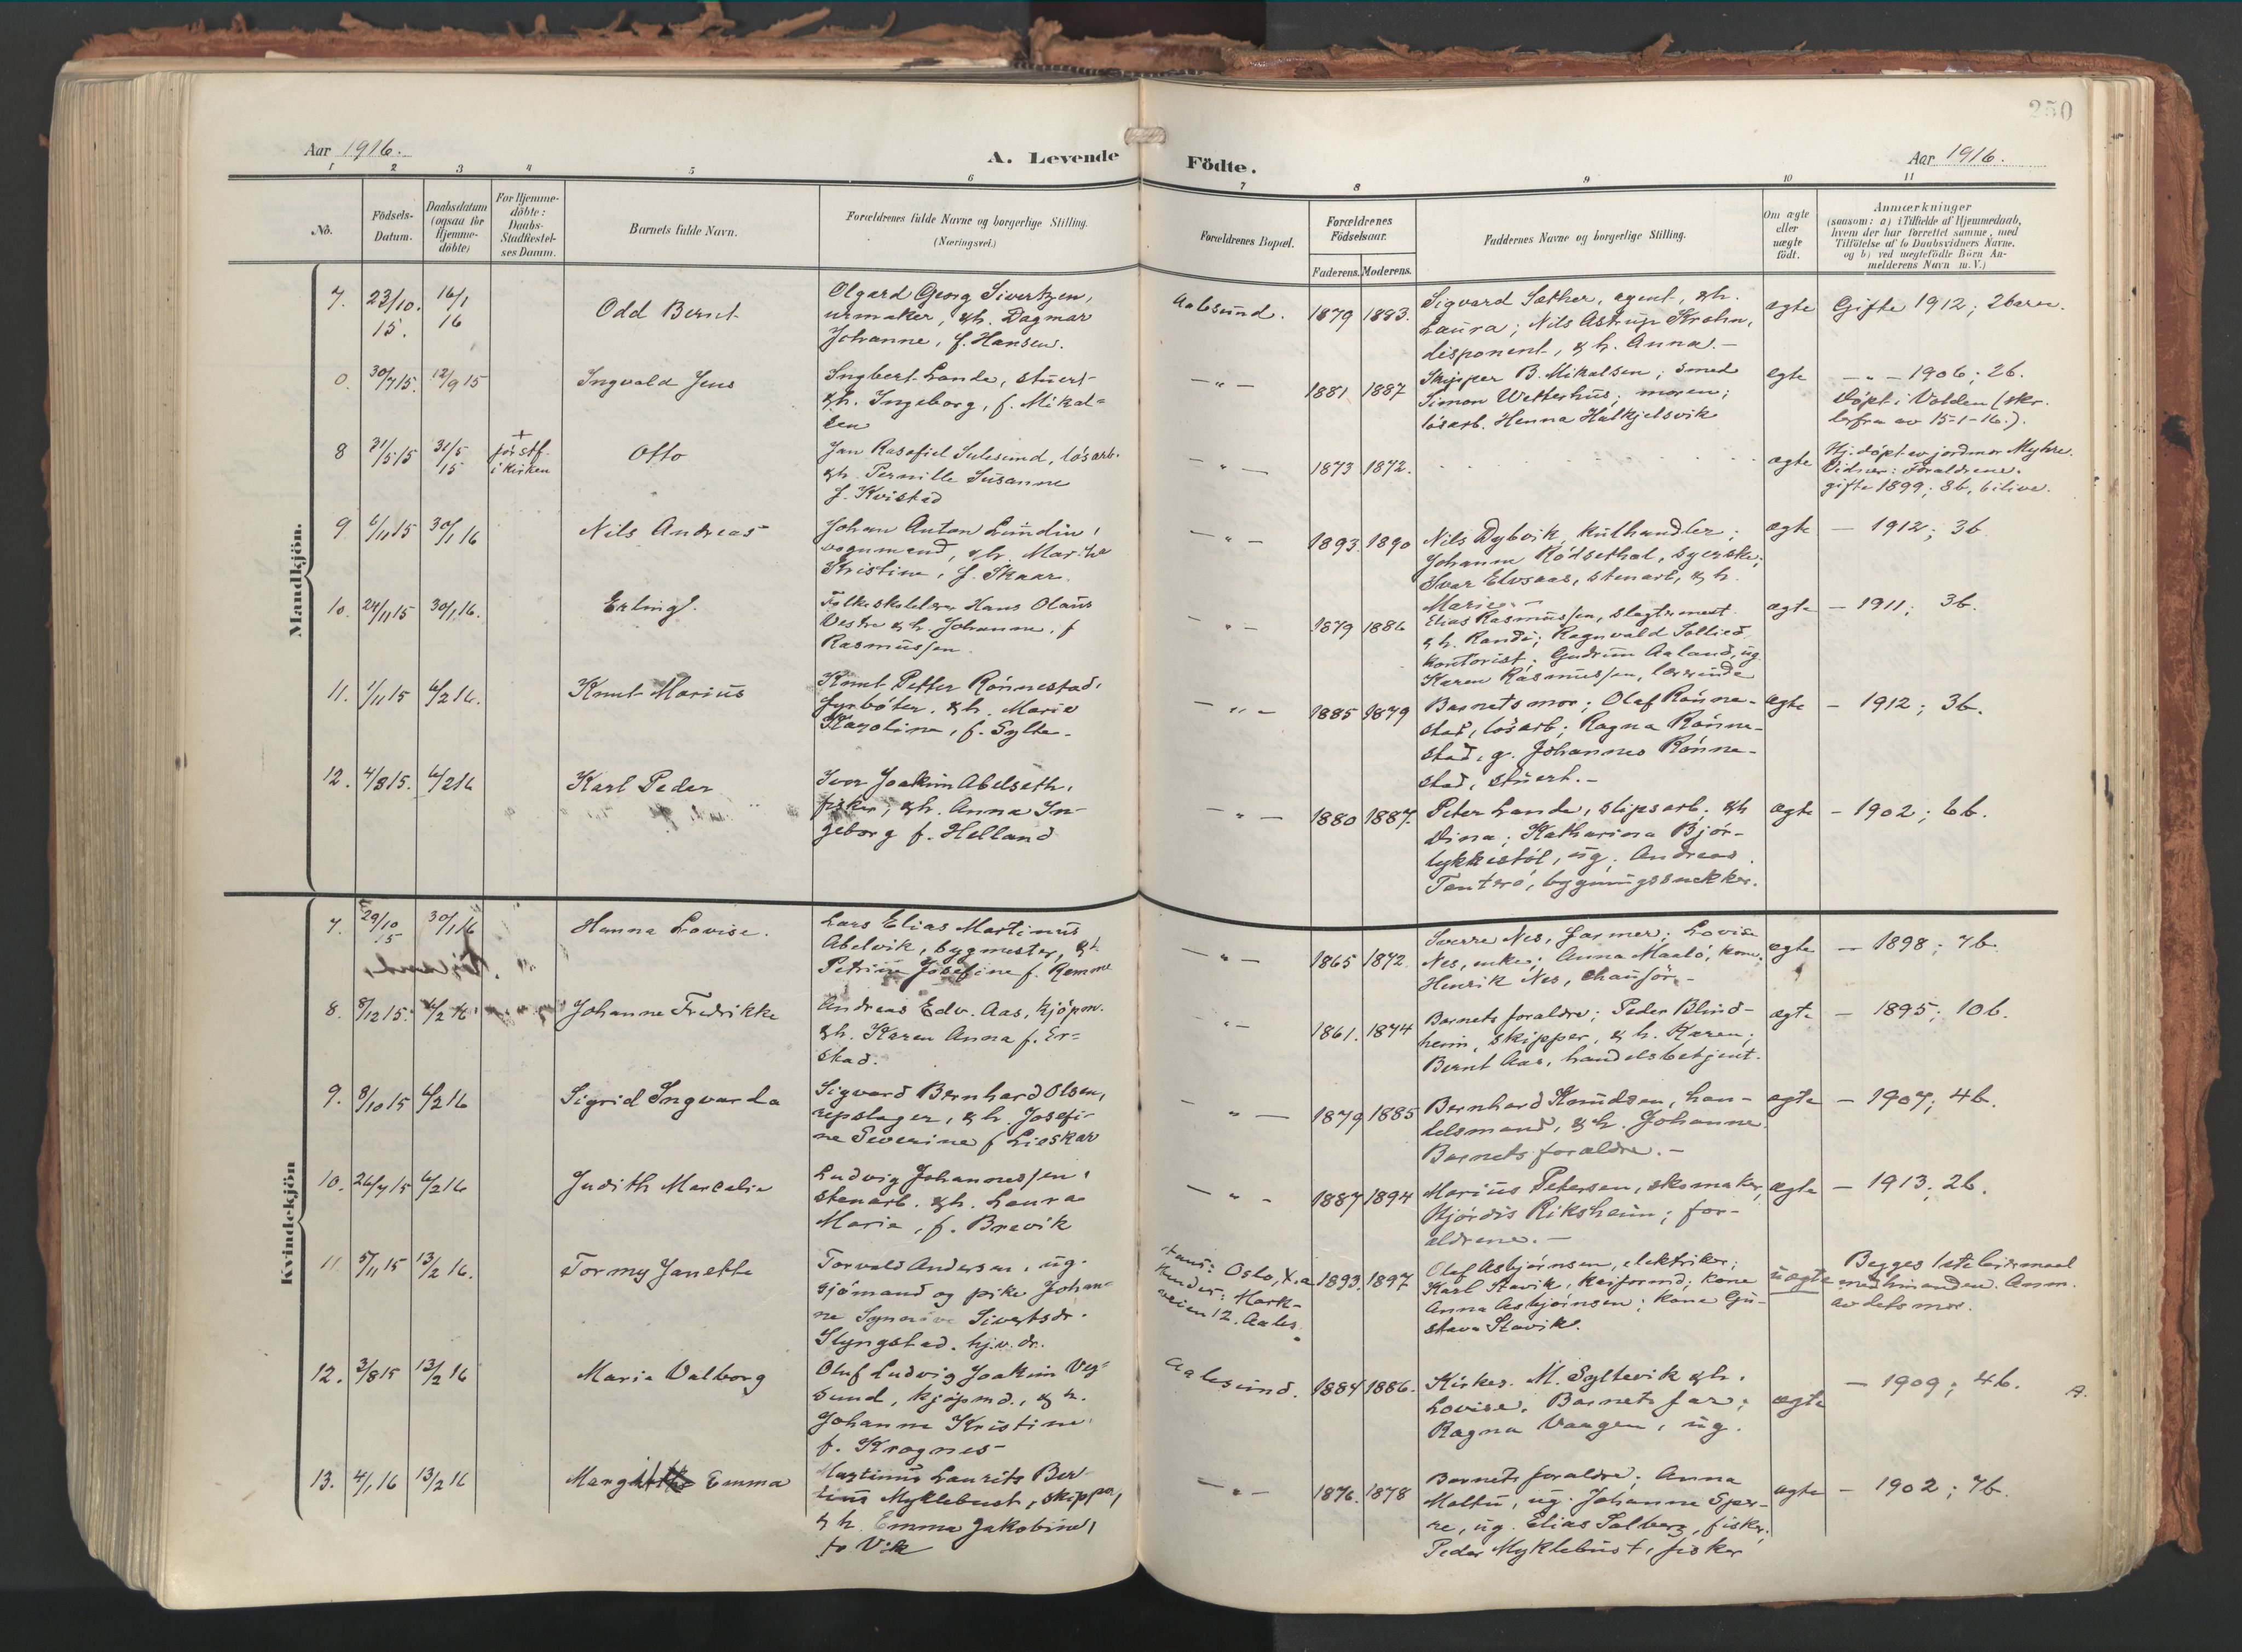 250
Aar 1916.
A. Levende
Födte.
Aar 1916.
1 2 3 4 5 6 7 8 9 10 11
No.
Födsels-
Datum.
Daabsdatum
(ogsaa for
Hjemme-
döbte)
For Hjemme-
döbte:
Daabs-
Stadfæstel-
ses Datum.
Barnets fulde Navn.
Forældrenes fulde Navne og borgerlige Stilling.
(Næringsvei.)
Forældrenes Bopæl.
Forældrenes
Födselsaar.
Faderens. Moderens.
Faddernes Navne og borgerlige Stilling.
Om ægte
eller
uægte
födt.
Anmærkninger
(saasom: a) i Tilfælde af Hjemmedaab,
hvem der har forrettet samme, med
Tilföielse af to Daabsvidners Navne.
og b) ved uægtefödte Börn An-
melderens Navn m. V.)
Mandkjön.
7. 23/10. 15. 16/1 16 Odd Bernt
Olgard Georg Sivertzen,
urmaker, & h. Dagmar
Johanne, f. Hansen.
Aalesund. 1879 1883.
Sigvard Sæther, agent, & h.
Laura; Nils Astrup Krohn,
disponent, & h. Anna. -
ægte Gifte 1912; 2 barn.
0. 30/7 15. 12/9 15 Ingvald Jens
Ingbert Lande, stuert
& h. Ingeborg, f. Mikal=
sen
- " - 1881 1887
Skipper B. Mikalsen; smed
Simon Wetterhus; moren;
lösarb. Henna Halkjelsvik
egte - " - 1906; 2 b.
Döpt i Volden (skr.
herfra av 15-1-16.).
8 31/5 15 31/5 15 + för stf. i kirken Otto
Jan Rasefiel Sulesund, lösarb.
& h. Pernille Susanne
f. Kvistad
- " - 1873 1872.
ægte Hj. döpt av jordmor Myhre.
Vidner: Forældrene.
gifte 1899; 8 b, 6 i live.
9 6/11 15 30/1 16 Nils Andreas
Johan Anton Lundin,
vognmand, & h. Marthe
Kristine, f. Skaar.
- " - 1893. 1890
Nils Dybvik, kulhandler;
Johanne Rödsethal, syerske;
Ivar Elvsaas, stenarb, & h.
Marie. -
ægte - 1912; 3 b
10. 24/11 15 30/1 16. Erling.
Folkeskolelærer Hans Olaus
Vestre & h. Johanne, f
Rasmussen.
- " - 1879 1886
Elias Rasmussen, slagtermest.
& h. Randi; Ragnvald Sollied,
kontorist; Gudrun Aaland, ug.
Karen Rasmussen, lærerinde
ægte - 1911; 3 b.
11. 1/11 15 6/2 16. Knut Marius
Knut Petter Rönnestad,
fyrböter. & h. Marie
Karoline, f. Sylte.
- " - 1885 1879
Barnets mor; Olaf Rönne-
stad, lösarb; Ragna Rönne-
stad, g. Johannes Rönne-
stad, stuert. -
ægte - 1912; 3 b.
12. 4/8 15. 6/2 16 Karl Peder
Iver Joakim Abelseth,
fisker, & h. Anna In-
geborg f. Helland
- " - 1880 1887.
Peter Lande, slipsarb; & h
Dina; Katharina Björ-
lykkestöl, ug; Andreas
Tanterö, bygningssnekker.
ægte - 1902; 6 b.
Kvindekjön
7. 29/10 15 30/1 16 Hanna Lovise.
Lars Elias Martinus
Abelvik, bygmester, & h.
Petrine Josefine f. Remme
- " - 1865 1872.
Sverre Nes, farmer; Lovise
Nes, enke; Anna Maalö, kone;
Henrik Nes, chauför. -
ægte - 1898; 7 b.
8. 8/12 15. 6/2 16 Johanne Fredrikke
Andreas Edv. Aas, kjöpm.
& h. Karen Anna f. Er=
stad.
" - 1861. 1874
Barnets forældre; Peder Blind-
heim, skipper, & h. Karen;
Bernt Aas, handelsbetjent.
ægte - 1895; 10 b.
9. 8/10 15 6/2 16 Sigrid Ingvarda
Sigvard Bernhard Olsen,
repslager, & h. Josefi-
ne Severine f Lioskar
- " - 1879 1885
Bernhard Knudsen, han-
delsmand, & h. Johanne.
Barnets forældre. -
ægte - 1907; 4 b.
10. 26/7 15 6/2 16 Judith Marcelie
Ludvig Johannessen,
stenarb. & h. Laura
Marie, f. Brevik
- " - 1887 1894
Marius Petersen, skomaker,
Hjördis Riksheim; for-
ældrene. -
ægte - 1913; 2 b.
11 5/11 15 13/2 16. Tormy Janette
Torvald Andersen, ug.
sjömand og pike Johan=
ne Synnöve Sivertsdr.
Slyngstad. hj.v. dr.
Hans: Oslo, Kr.a
Hendes: Mark-
veien 12. Aales.
1893. 1897
Olaf Asbjörnsen, elektriker;
Karl Stavik, kaiformd; kone
Anna Asbjörnsen; kone Gu-
stava Stavik.
uægte Begges 1ste leiermaal
med hinanden. Anm.
av dets mor.
12. 3/8 15 13/2 16 Marie Valborg
Oluf Ludvig Joakim Veg=
sund, kjöpmd., & h.
Johanne Kristine
f. Krognes
Aalesund. 1884 1886.
Kirkes. M. Syltevik & h.
Lovise. Barnets far;
Ragna Vaagen, ug.
ægte - 1909; 4 b.
13. 4/1 16 13/2 16 Margit Emma
Martinus Laurits Ber-
tinus Myklebust, skipper,
& h. Emma Jakobine,
f. Vik
- " - 1876. 1878
Barnets forældre; Anna
Moltu, ug. Johanne Sper-
re, ug. Elias Solberg, fisker;
Peder Myklebust, fisker
ægte - 1902; 7 b.